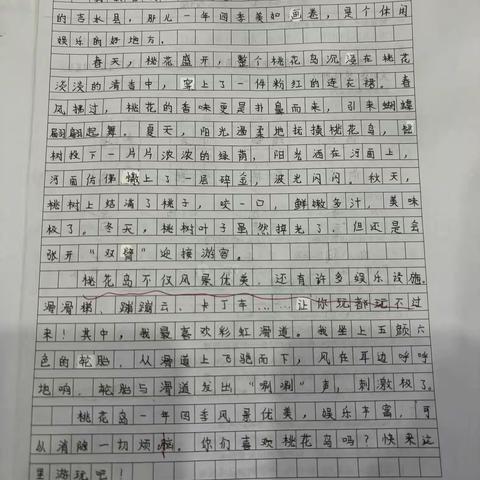 的吉水县，那儿一年四季美如画卷，是个休闲
娱乐的好地方。
春天，桃花盛开，整个桃花岛沉浸在桃花
淡淡的清香中，穿上了一件粉红的连衣裙。春
风拂过，桃花的香味更是扑鼻而来，引来蝴蝶
翩翩起舞。夏天，阳光温柔地抚摸桃花岛，桃
树投下一片片浓浓的绿荫，阳光洒在河面上，
河面仿佛镀上了一层碎金，波光闪闪。秋天，
桃树上结满了桃子，咬一口，鲜嫩多汁，美味
极了。冬天，桃树叶子虽然掉光了，但还是会
张开“双臂”迎接游客。
桃花岛不仅风景优美，还有许多娱乐设施。
滑滑梯、蹦蹦云、卡丁车……让你玩都玩不过
来！其中，我最喜欢彩虹滑道。我坐上五颜六
色的轮胎，从滑道上飞驰而下，风在耳边呼呼
地响，轮胎与滑道发出“唰唰”声，刺激极了。
桃花岛一年四季风景优美，娱乐丰富，可
以消除一切烦恼。你们喜欢桃花岛吗？快来这
里游玩吧！